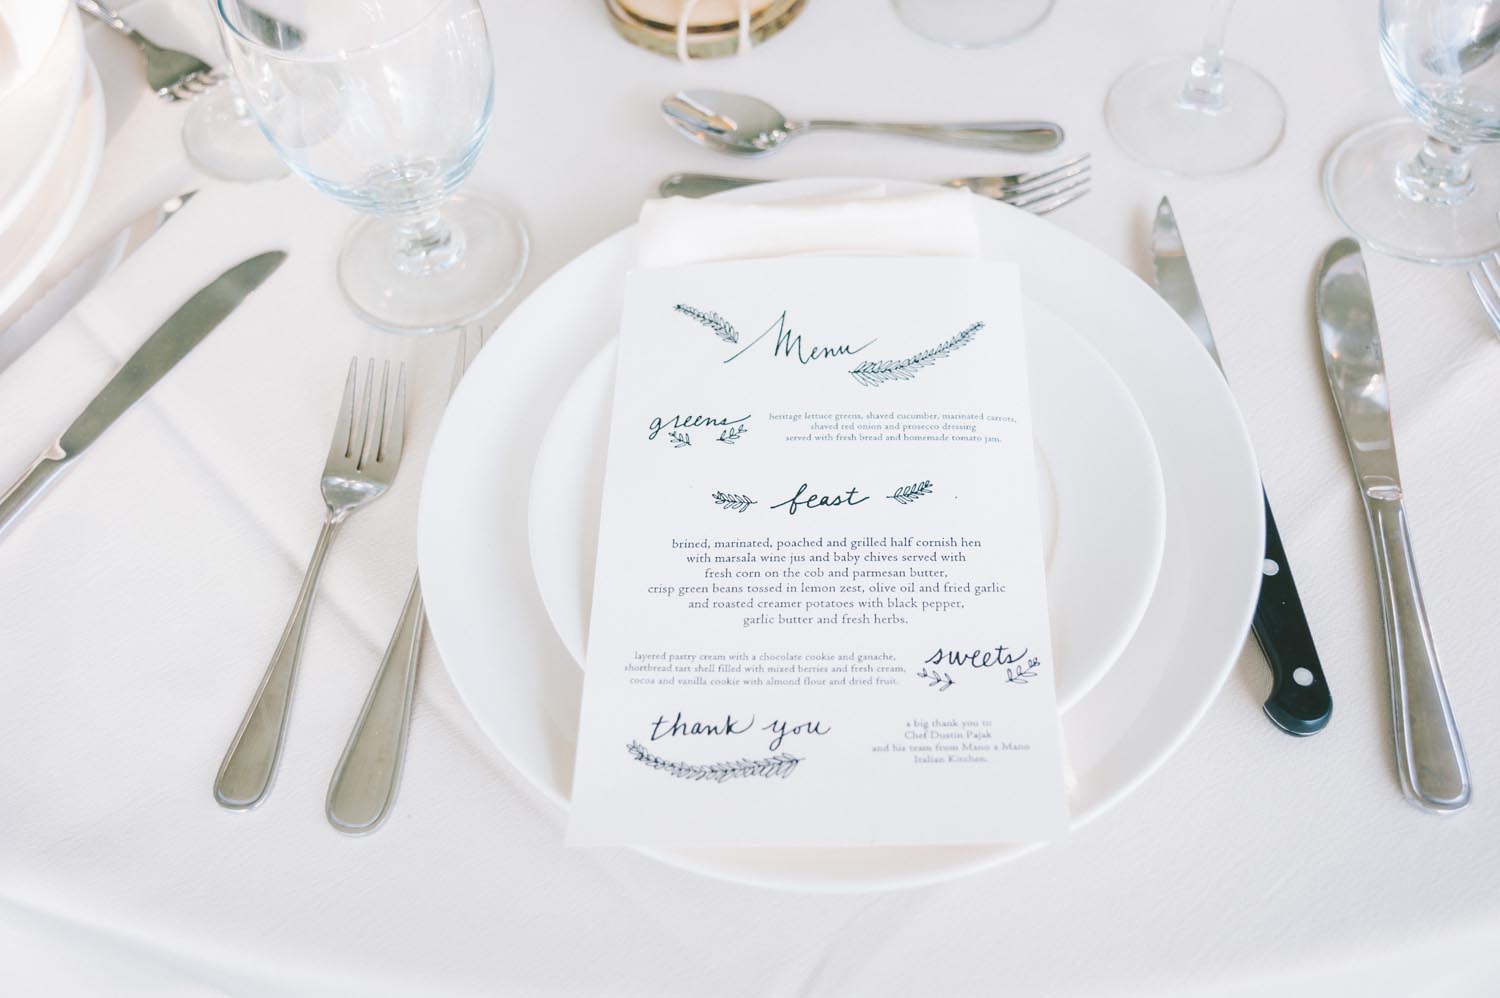 Menu
greens
heritage lettuce greens, shaved cucumber, marinated carrots,
shaved red onion and prosecco dressing
served with fresh bread and homemade tomato jam.
feast
brined, marinated, poached and grilled half cornish hen
with marsala wine jus and baby chives served with
fresh corn on the cob and parmesan butter,
crisp green beans tossed in lemon zest, olive oil and fried garlic
and roasted creamer potatoes with black pepper,
garlic butter and fresh herbs.
layered pastry cream with a chocolate cookie and ganache,
shortbread tart shell filled with mixed berries and fresh cream,
cocoa and vanilla cookie with almond flour and dried fruit.
sweets
thank you
a big thank you to
Chef Dustin Pajak
and his team from Mano a Mano
Italian Kitchen.